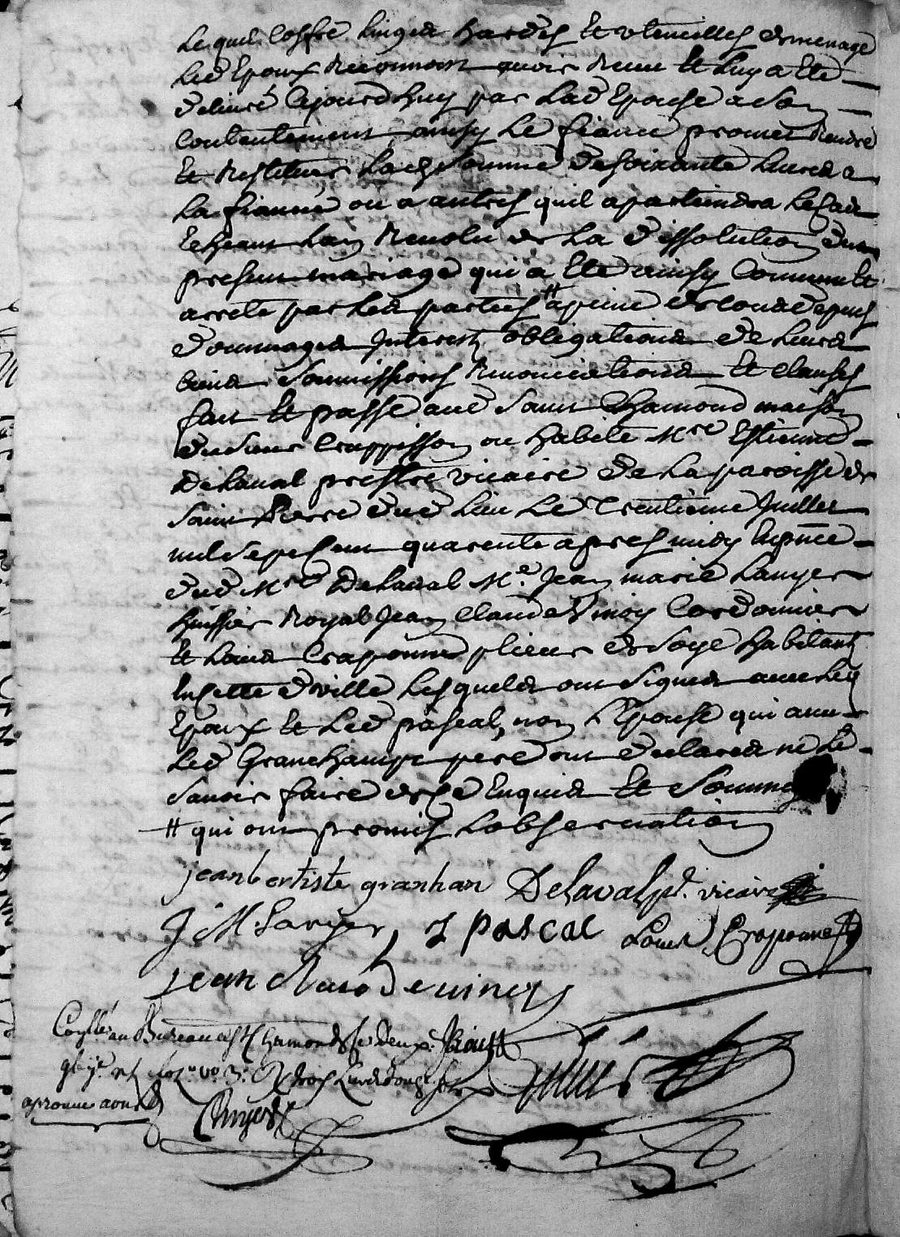 Lequel Coffre Linges hardes Et Utencilles de menage
Led Epoux Reconnoit avoir Receu Et luy a Ete
delivré ajourdhuy par Lad Epouse a son
Contentement ainsy Le fiancé promet Rendre
Et Restituer Lad Somme de Soixante Livres a
La fiancée ou a autres quil apartiendra Le Cas
Echeant Lan Revolu de La dissolution du
present mariage qui a Eté ainsy Convenu Et
arreté par Les parties # a peine de tous depens
dommages Interests obligations de Leurs
biens Soumissions Renonciations Et clauses
fait Et passé aud Saint Chamond maison
du Sieur Crappisson ou habite Mre Estienne
Delaval prestre vicaire de La paroisse de
Saint Pierre dud Lieu Le Trentieme Juillet
mil Sept Cent quarente apres midy En pnce
dud Mre Delaval Me Jean marie Lanyer
huissier Royal Jean Claude Vinoy Cordonnier
Et Louis Craponne plieur de Soye habitants
En Cette d ville Lesquels ont Signés avec Les
Epoux Et Led pascal, non L'Epouse qui avec
Led Granchamp pere ont declarés ne Le
Savoir faire de Ce Enquis Et Sommés
# qui ont promis L'observation
jean bertiste granhan Delaval pt. vicaire
J M Lanyer J Pascal Louis Craponne
jean Claude vinoy
au Bureau de St Chamond Le deux